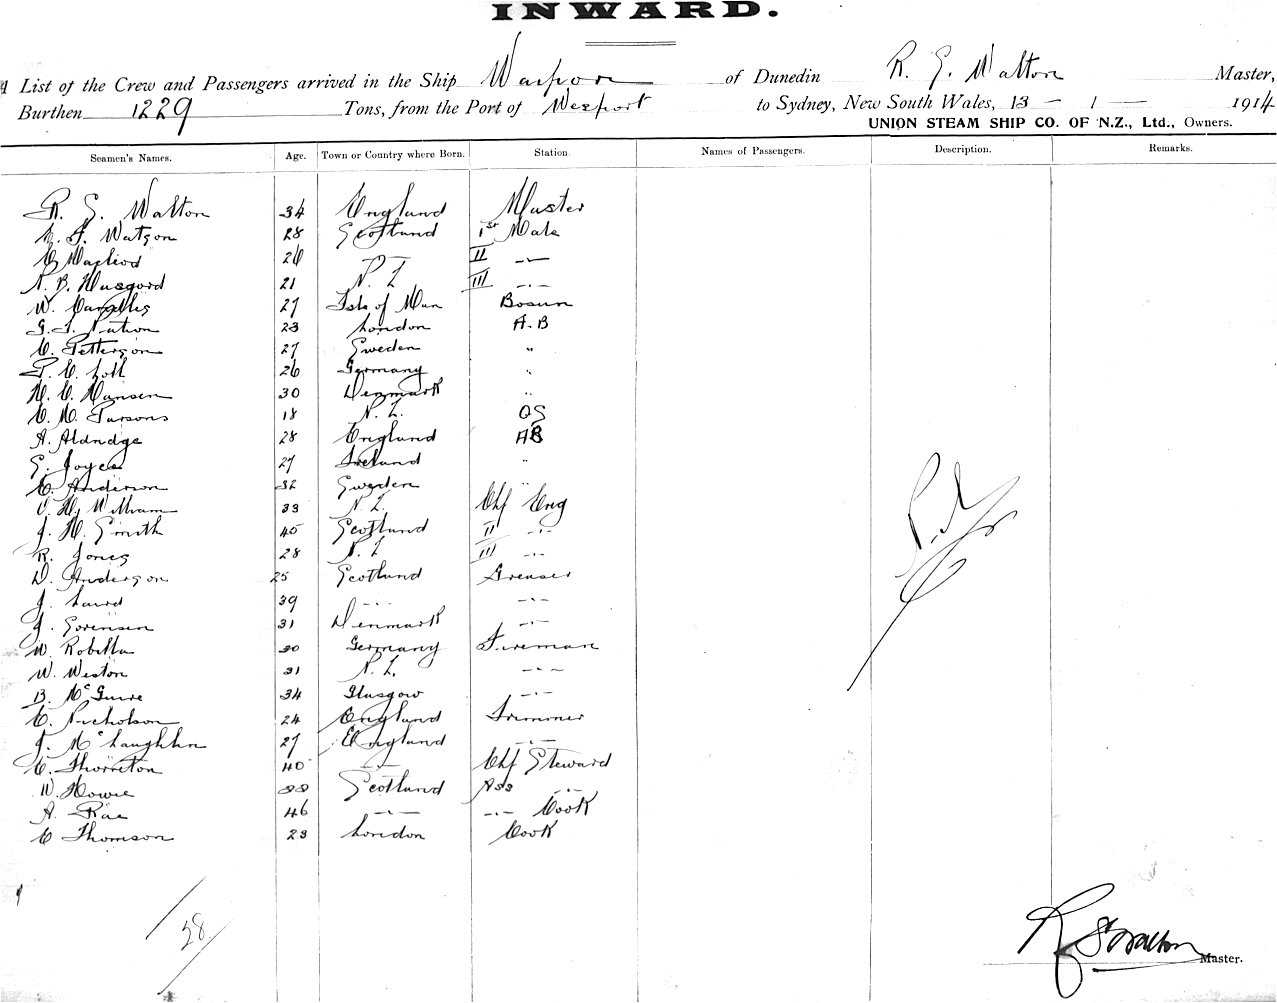 INWARD.
A List of the Crew and Passengers arrived in the Ship Waipori of Dunedin R. S. Walton Master,
Burthen 1229 Tons, from the Port of Wesport to Sydney, New South Wales, 13 - 1 - 1914
UNION STEAM SHIP CO. OF N.Z., Ltd., Owners.
Seamen's Names. Age. Town or Country where Born. Station. Names of Passengers. Description. Remarks.
R. S. Walton 34 England Master
Watson 28 Scotland 1st Mate
Macleod 26 II -"-
N. Z. 21 III -"-
W. 27 Isle of Man Bosun
Nation 23 London A.B
C. Petterson 27 Sweden "
26 Germany "
H. C. Hansen 30 Denmark "
C. M. Parsons 18 N. Z. OS
A. Aldridge 28 England AB
Joyce 27 Ireland "
C. Anderson 32 Sweden "
C. H. Williams 33 N. Z. Chf Eng
J. H. Smith 45 Scotland II -"-
R. Jones 28 N. Z III -"-
D. Anderson 25 Scotland Greaser
J. Laird 39 -"- -"-
J. Sorensen 31 Denmark -"-
W. 30 Germany Fireman
W. Weston 31 N. Z. -"-
B. McGuire 34 Glasgow -"-
C. Nicholson 24 England Trimmer
J. McLaughlin 27 England -"-
C. Thornton 40 -"- Chf Steward
W. Howie 38 Scotland Ass -"-
A. Rae 46 -"- -"- Cook
C Thomson 23 London Cook
28
R S Walton Master.